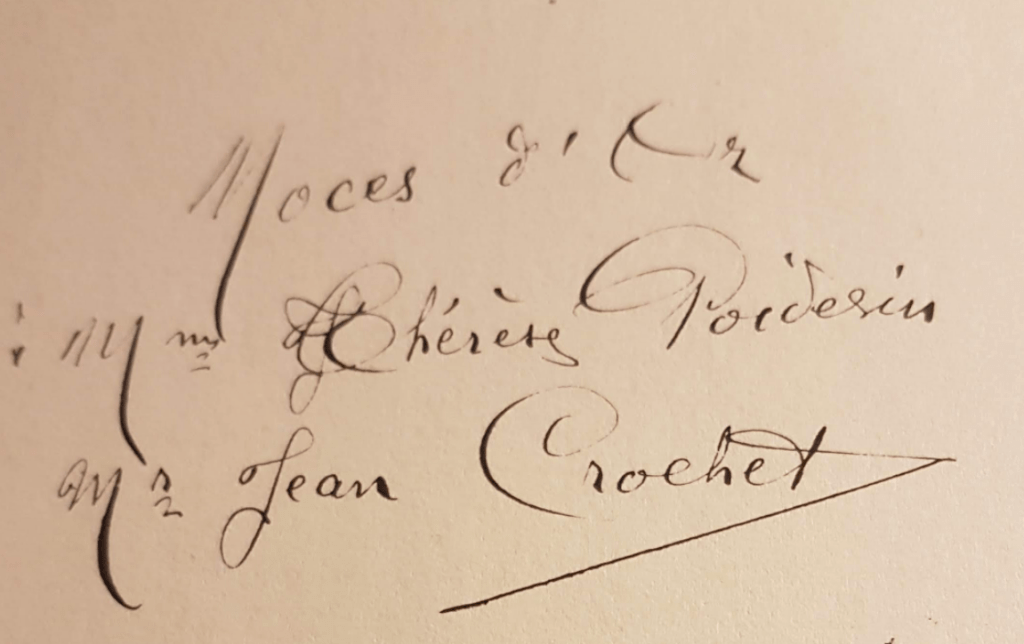 Noces d'Or
: Mme Thérèse Poiderin
Mr Jean Crochet